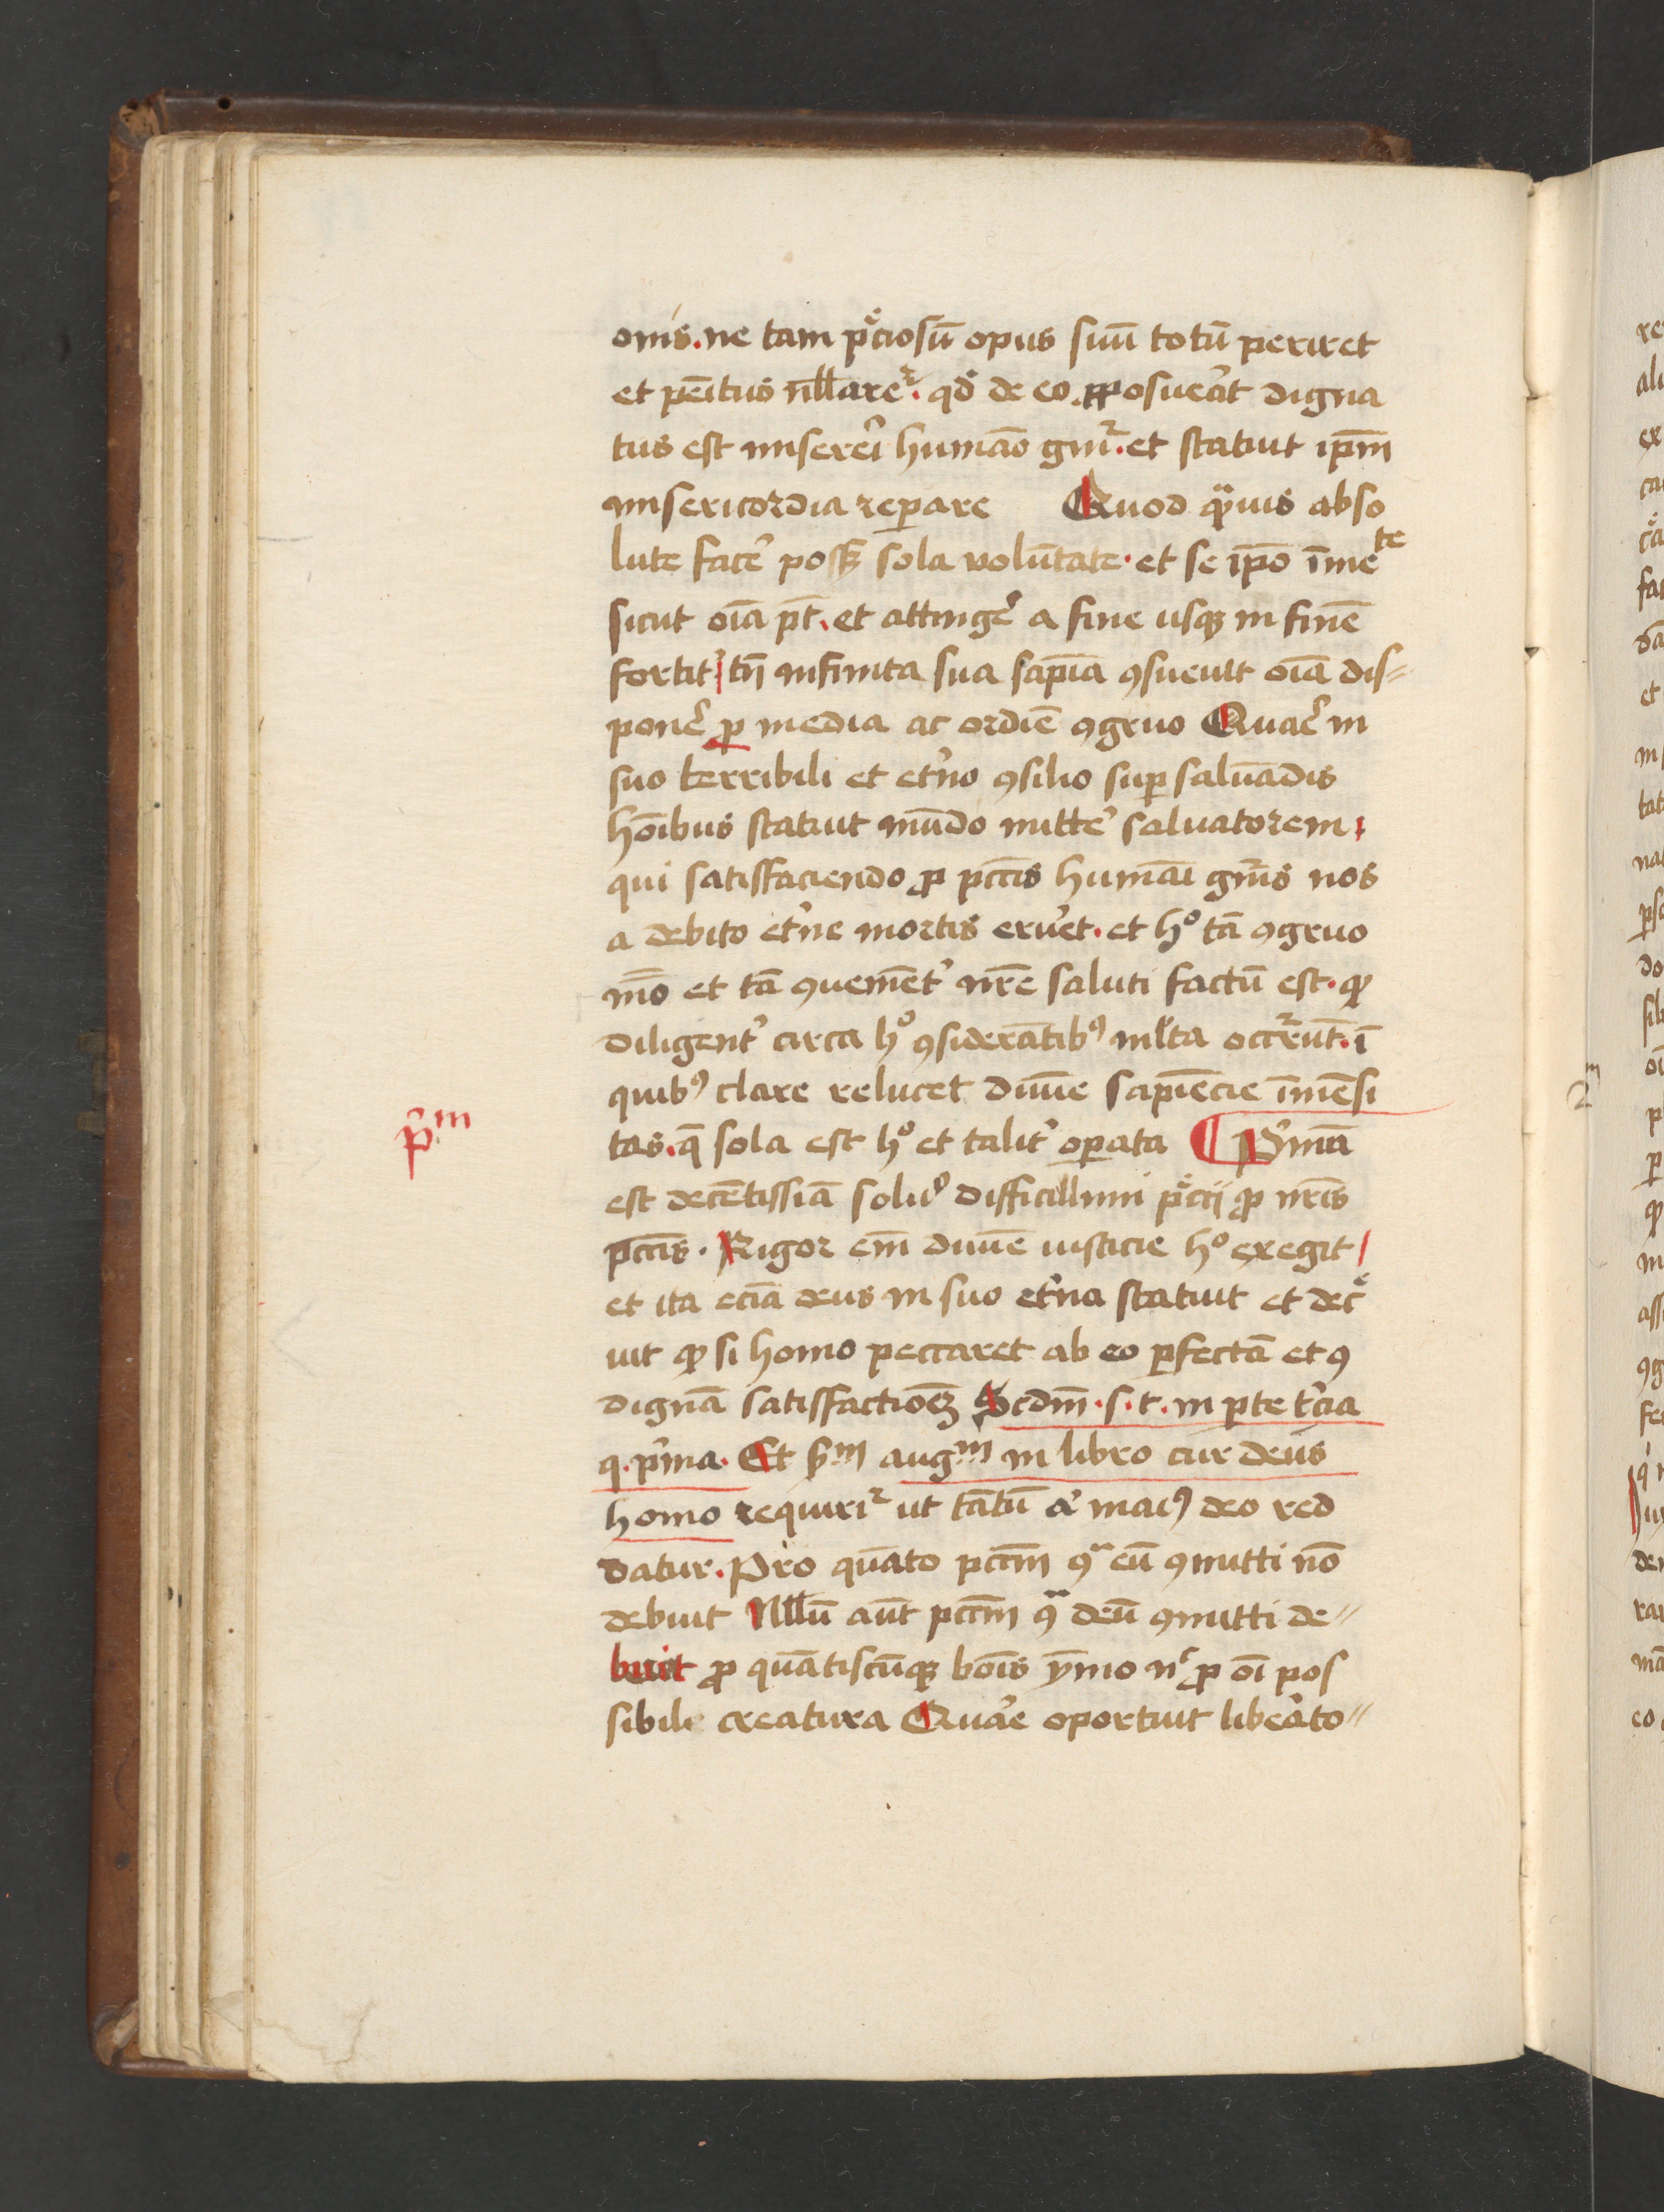 onis. ne tam p̄ciosū opus suū totū periret
et pēitus nllaret᷑. qđ de eo ꝓposuerāt digna
tus est miserei̾ humāo gn̄i. et statuit ip̄m
misericordia reꝑare Quod qͣuis abso
lute face̾ possꝫ sola volūtate. et se ip̄o īmeᵗᵉ
sicut oīa pt̄. et attinge̾ a fine usqꝫ in finē
fortit̾ tn̄ infinita sua sapīa ꝯsueuit oīa dis⸗
pone̾ ꝑ media ac ordiē ꝯgruo Quae̾ in
suo terribili et et̾no ꝯsilio suꝑ saluādis
hoībus statuit mūdo mitte̾ saluatorem
qui satisfaciendo ꝓ pctīs humāi gn̄is nos
a debito et̾ne mortis erue̾t. et hͦ tā ꝯgruo
mō et tā ꝯueniēt̾ nr̄e saluti factū est. ꝙ
diligent̾ circa hͦ ꝯsiderātibꝰ ml̾ta occr̾rūt. ī
quibꝰ clare relucet diuīe sapiēcie īmēsi
tas. q̄ sola est hͦ et talit̾ oꝑata ¶ P̾mū
p̾.ᵐ
est decētissīa soluc̾o difficillimi p̄cij ꝓ nr̄is
pctīs. Rigor em̄ diuīe iusticie hͦ exegit
et ita eciā deus in suo et̾na statuit et decͤ
uit ꝙ si homo peccaret ab eo ꝑfectā et ꝯ
dignā satisfactioēꝫ Scdm̄. s. t. in ꝑte t̾cia
q. p̾ma. Et sᵐ augᵐ in libro cur deus
homo requirit᷑ ut tātū a̾ maiꝰ deo red
datur. Pro quāto pctm̄ ꝯͣ eū ꝯmitti nō
debuit Nllū aūt pctm̄ ꝯͣ deū ꝯmitti de⸗
buit ꝓ quātiscūqꝫ boīs ȳmo nͨ ꝓ oī pos
sibili creatura Qua̾e oportuit libera̾to⸗